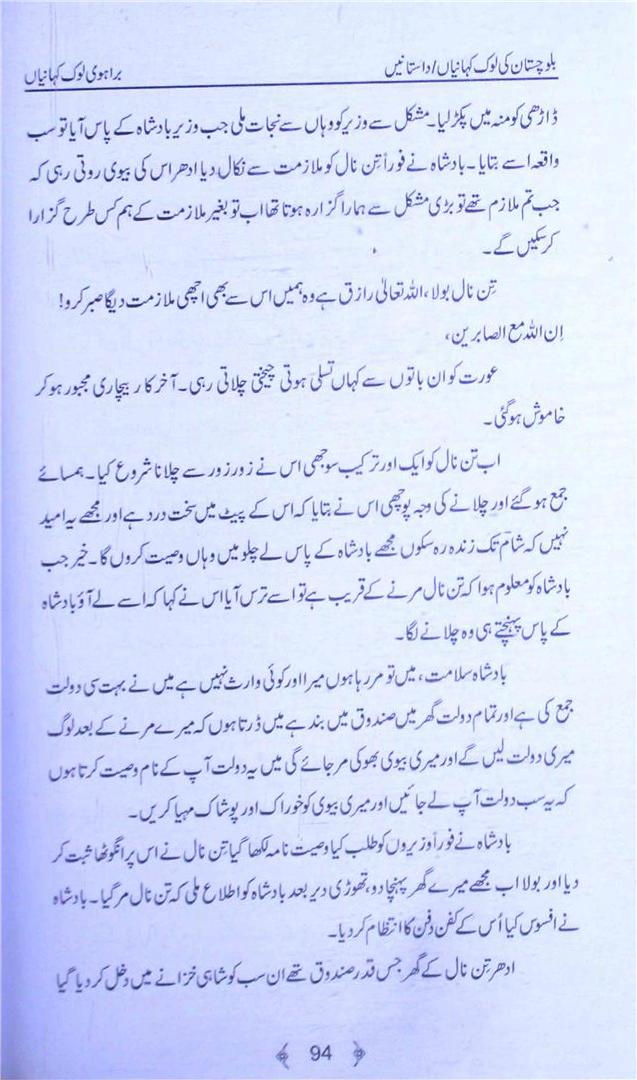 بلوچستان کی لوک کہانیاں/داستانیں
براہوی لوک کہانیاں
ڈاڑھی کو منہ میں پکڑ لیا۔ مشکل سے وزیر کو وہاں سے نجات ملی جب وزیر بادشاہ کے پاس آیا تو سب
واقعہ اسے بتایا۔ بادشاہ نے فوراً تِن نال کو ملازمت سے نکال دیا ادھر اس کی بیوی روتی رہی کہ
جب تم ملازم تھے تو بڑی مشکل سے ہمارا گزارہ ہوتا تھا اب تو بغیر ملازمت کے ہم کس طرح گزارا
کر سکیں گے۔
تِن نال بولا، اللہ تعالیٰ رازق ہے وہ ہمیں اس سے بھی اچھی ملازمت دیگا صبر کرو!
اِن اللہ مع الصابرین،
عورت کو ان باتوں سے کہاں تسلی ہوتی چیختی چلاتی رہی۔ آخر کار بیچاری مجبور ہو کر
خاموش ہو گئی۔
اب تن نال کو ایک اور ترکیب سوجھی اس نے زور زور سے چلانا شروع کیا۔ ہمسائے
جمع ہو گئے اور چلانے کی وجہ پوچھی اس نے بتایا کہ اس کے پیٹ میں سخت درد ہے اور مجھے یہ امید
نہیں کہ شام تک زندہ رہ سکوں مجھے بادشاہ کے پاس لے چلو میں وہاں وصیت کروں گا۔ خیر جب
بادشاہ کو معلوم ہوا کہ تن نال مرنے کے قریب ہے تو اسے ترس آیا اس نے کہا کہ اسے لے آؤ بادشاہ
کے پاس پہنچتے ہی وہ چلانے لگا۔
بادشاہ سلامت، میں تو مر رہا ہوں میرا اور کوئی وارث نہیں ہے میں نے بہت سی دولت
جمع کی ہے اور تمام دولت گھر میں صندوق میں بند ہے میں ڈرتا ہوں کہ میرے مرنے کے بعد لوگ
میری دولت لیں گے اور میری بیوی بھوکی مر جائے گی میں یہ دولت آپ کے نام وصیت کرتا ہوں
کہ یہ سب دولت آپ لے جائیں اور میری بیوی کو خوراک اور پوشاک مہیا کریں۔
بادشاہ نے فوراً وزیروں کو طلب کیا وصیت نامہ لکھا گیا تِن نال نے اس پر انگوٹھا ثبت کر
دیا اور بولا اب مجھے میرے گھر پہنچا دو، تھوڑی دیر بعد بادشاہ کو اطلاع ملی کہ تن نال مر گیا۔ بادشاہ
نے افسوس کیا اُس کے کفن دفن کا انتظام کر دیا۔
ادھر تِن نال کے گھر جس قدر صندوق تھے ان سب کو شاہی خزانے میں دخل کر دیا گیا
94